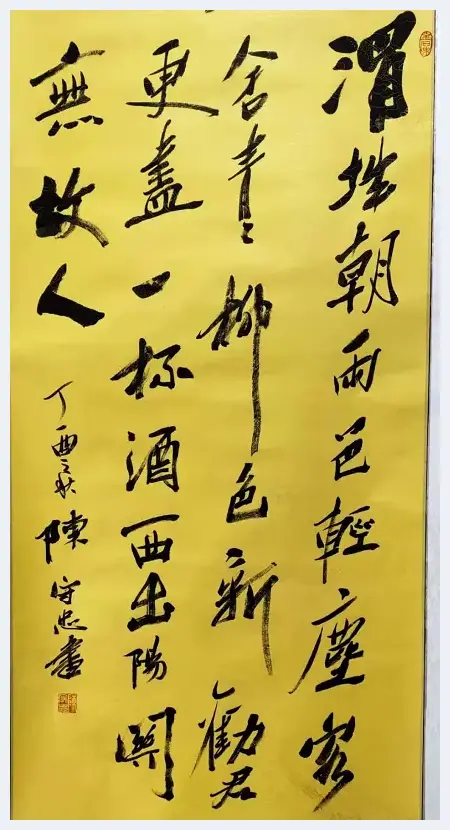 渭城朝雨邑輕塵客
舍青々柳色新勸君
更盡一杯酒西出陽關
無故人
丁酉之秋陳守忠書